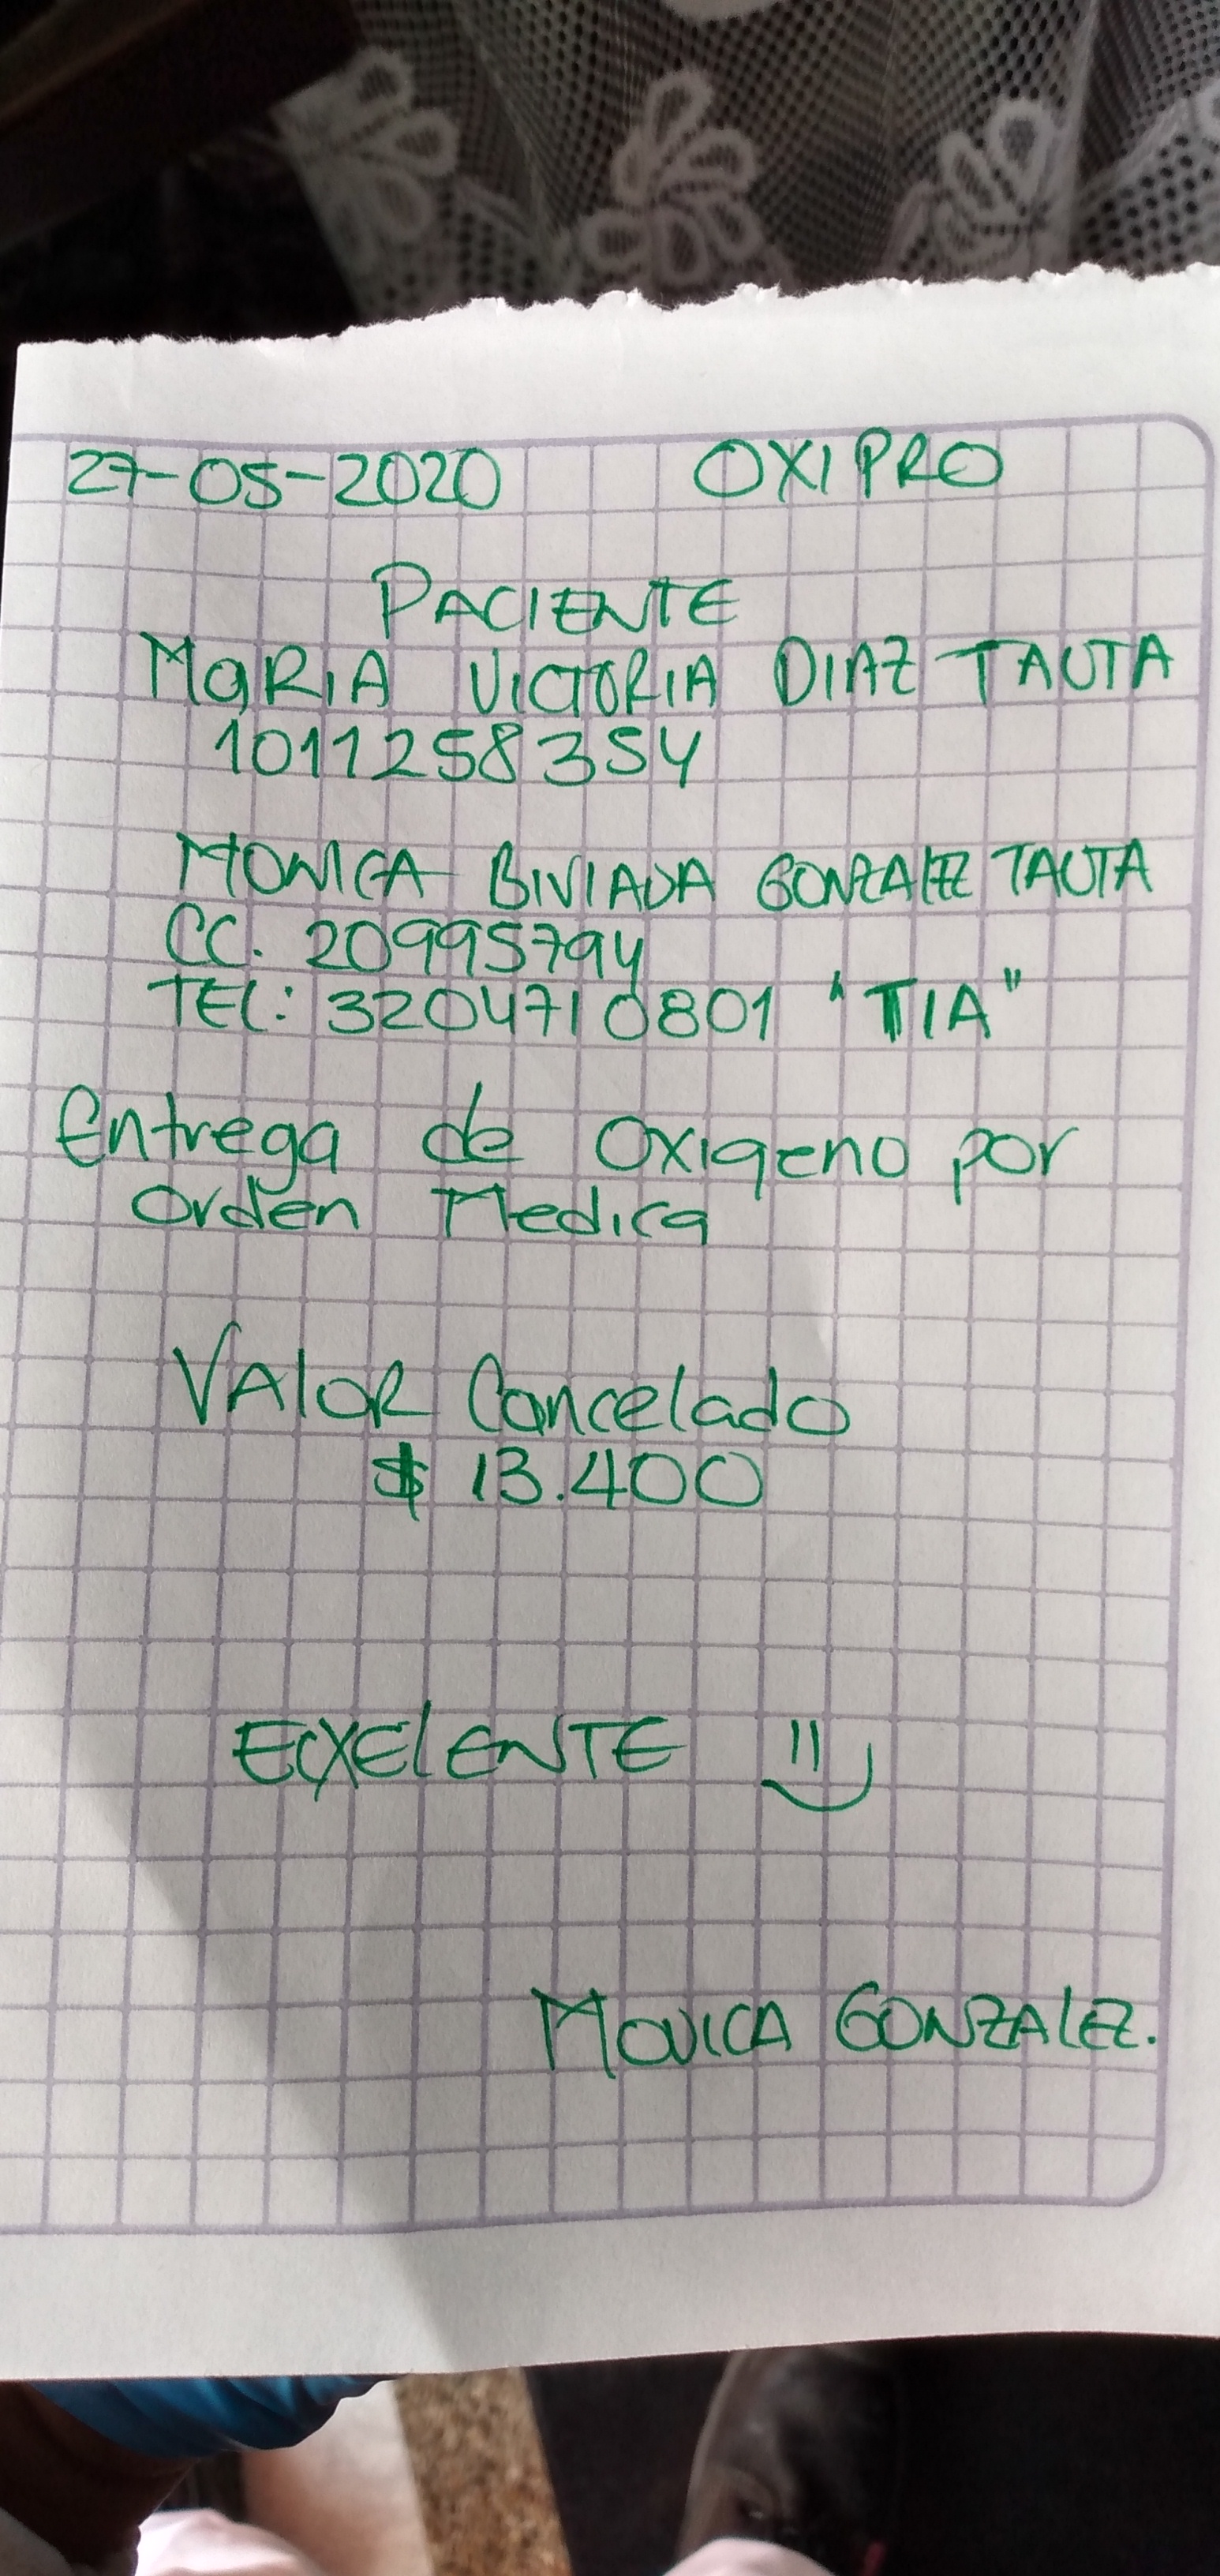 27-05-2020 OXIPRO
PACIENTE
MaRiA VICTORIA DIAZ TAUTA
1011258354
MONICA BIVIANA GONZALEZ TAUTA
CC. 20995794
TEL: 3204710801 "TIA"
Entrega de Oxigeno por
Orden Medica
VAlOR Cancelado
$ 13.400
ECXElENTE
MONICA GONZAlEZ.